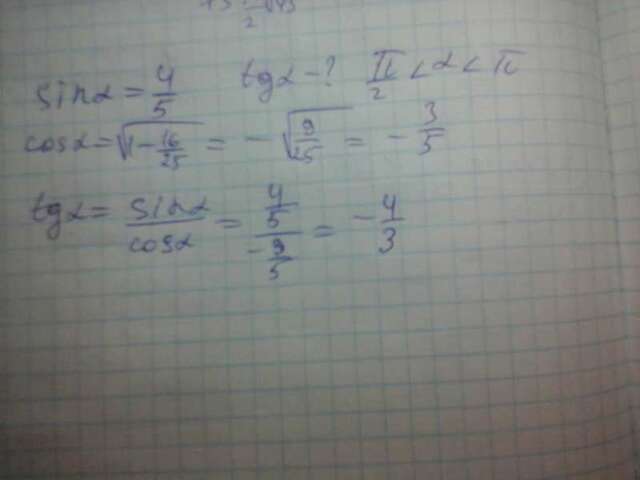 sinα = 4/5 tgα - ? π/2 < α < π
cosα = √(1 - 16/25) = -√(9/25) = - 3/5
tgα = sinα/cosα = (4/5)/(-3/5) = - 4/3